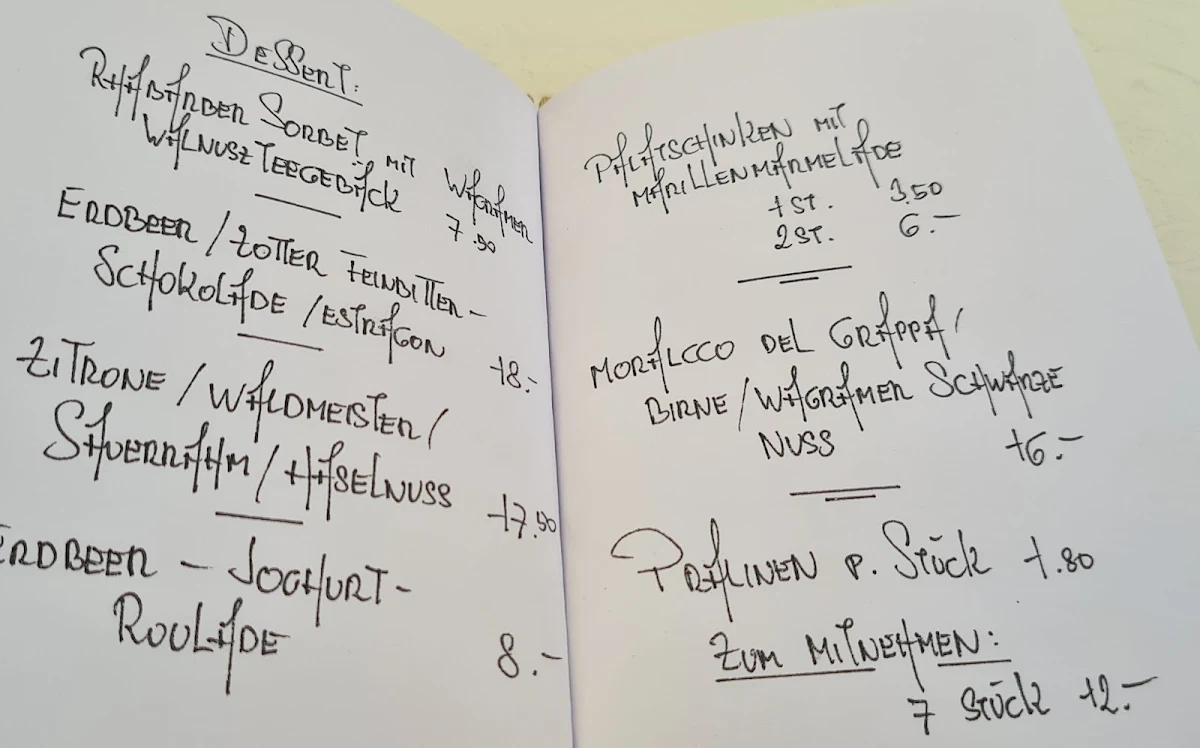 DESSERT:
RHABARBER SORBET MIT WAGRAMER
WALNUSZ TEEGEBÄCK 7.50
ERDBEER / ZOTTER FEINBITTER-
SCHOKOLADE / ESTRAGON 18.-
ZITRONE / WALDMEISTER /
SAUERRAHM / HASELNUSS 17.50
ERDBEER - JOGHURT-
ROULADE 8.-
PALATSCHINKEN MIT
MARILLENMARMELADE
1 ST. 3.50
2 ST. 6.-
MORALCCO DEL GRAPPA /
BIRNE / WAGRAMER SCHWARZE
NUSS 16.-
PRALINEN P. STÜCK 1.80
ZUM MITNEHMEN:
7 STÜCK 12.-